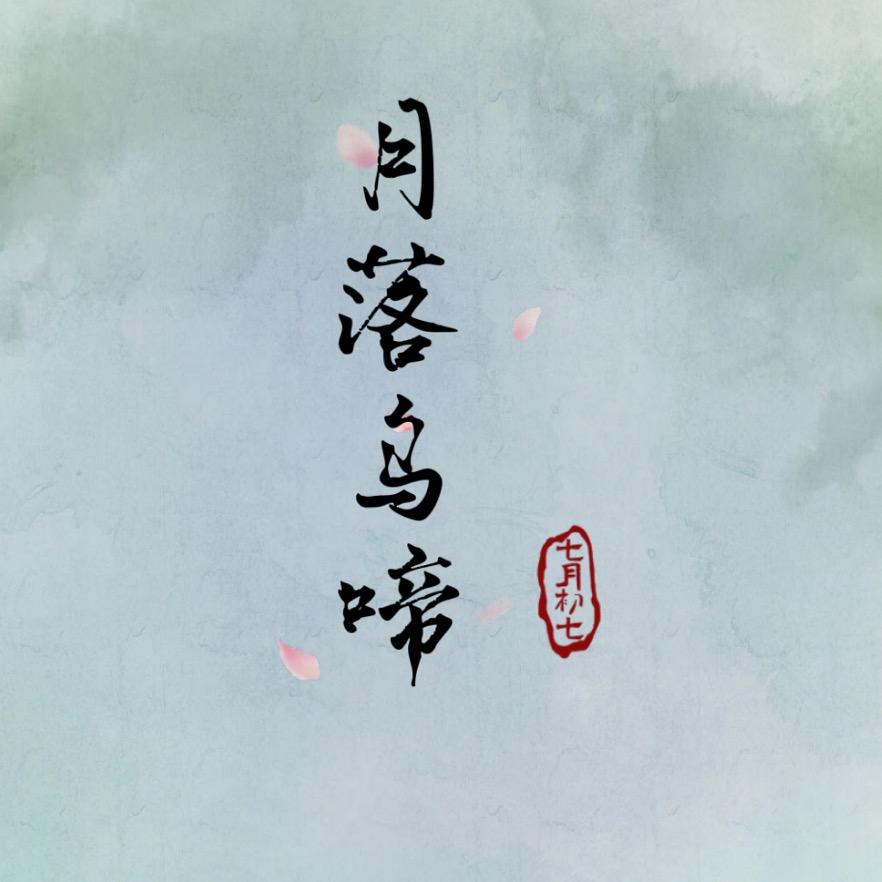 月落乌啼
七月初七